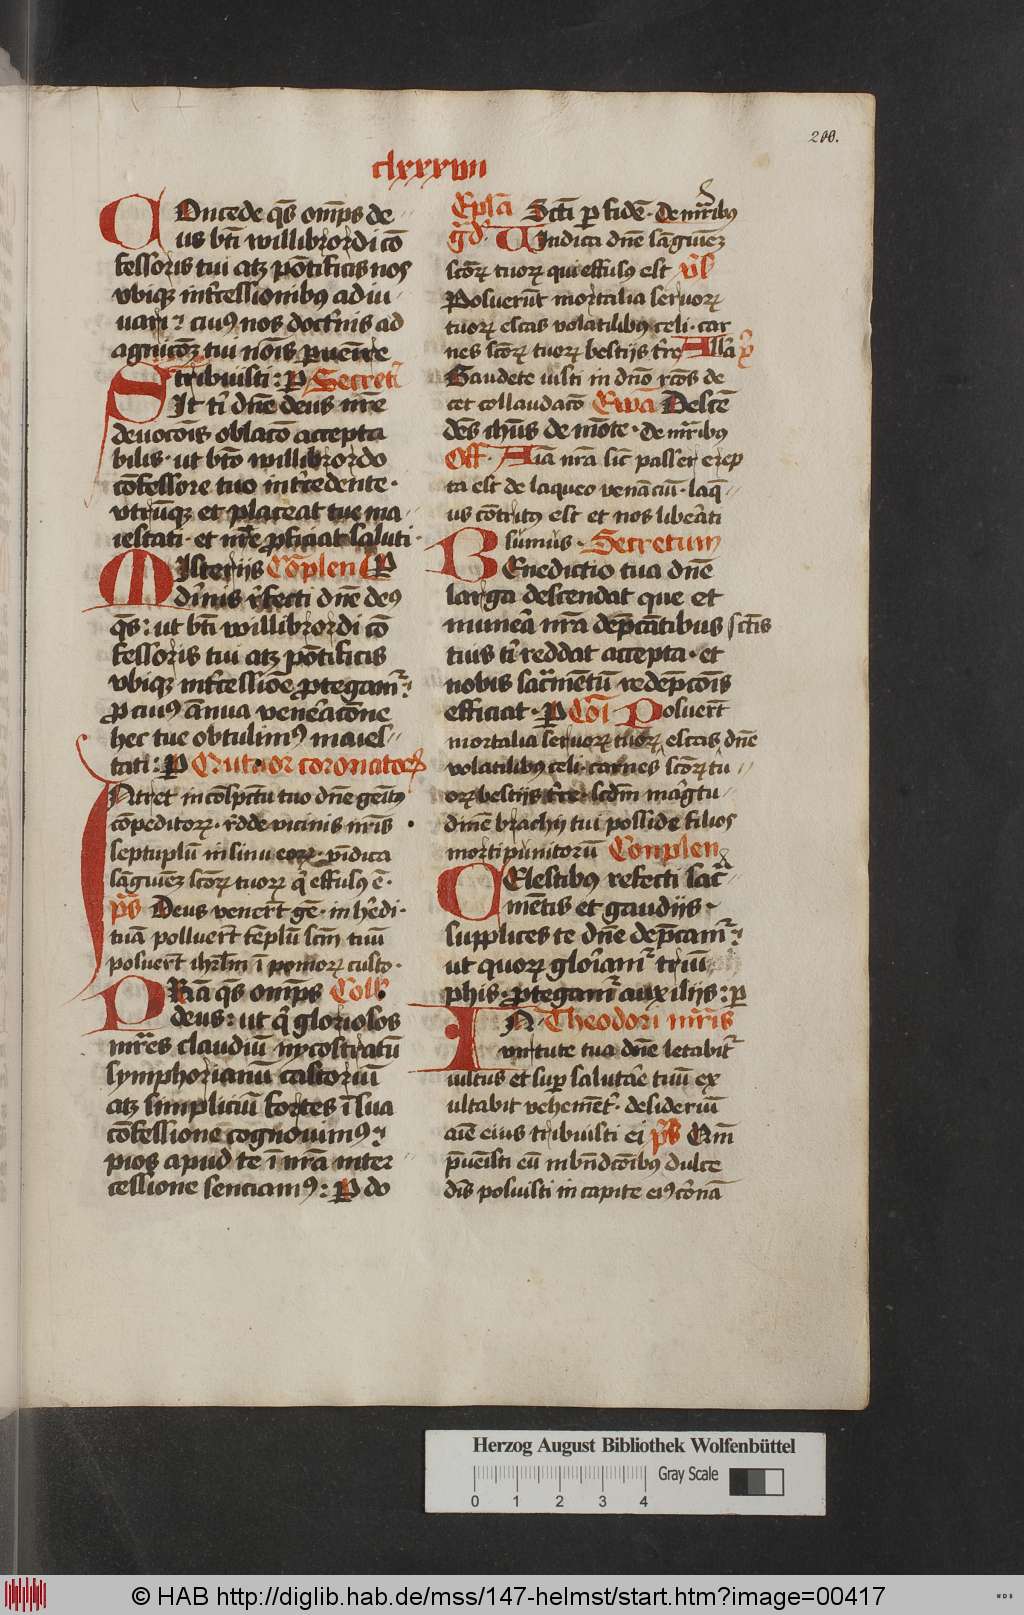 200.
clxxxviii
COncede qs̄ om̄ps de
us bt̄i willibrordi cō
fessoris tui atqꝫ pōtificis nos
vbiqꝫ int̄cessionibꝰ adiu
uari: cuiꝰ nos doct̄nis ad
agnicōꝫ tui nōis puenīre
tribuisti: P Secret̄
SIt ti dn̄e deus nr̄e
deuocōis oblacō accepta
bilis· ut bt̄o willibrordo
cōfessore tuo int̄cedente·
vtrūqꝫ et placeat tue ma
iestati· et nr̄e ꝓficiat saluti·
MIsterijs Cōplen P
diīnis r̄fecti dn̄e deꝰ
qs̄: ut bt̄i willibrordi cō
fessoris tui atqꝫ pōtificis
vbiqꝫ int̄cessiōe ꝓtegamᷣ:
ꝓ cuiꝰ ānua venēacōne
hec tue obtulimꝰ maies
tati: P Quatuor coronatoꝝ
INtret in cōspcū tuo dn̄e gemitꝰ
cōpeditoꝝ· r̄dde vicinis nr̄is ·
septuplū in sinu eoꝝ· vīdica
sāguinēꝫ scōꝝ tuoꝝ q̄ effusꝰ ē·
ps̄ Deus venert̄ gē· in hēdi
tuā polluert̄ tēplū scm̄ tuū
posuert̄ ihrlm̄ ī pomoꝝ custo·
PRīa qs̄ om̄ps Coll̄
deus: ut q̄ gloriosos
mr̄es claudiū nycostratū
symphorianū castoriū
atqꝫ simpliciū fortes ī sua
cōfessione cognouimꝰ:
pios apud te ī nr̄a inter
cessione senciamꝰ: P do
Epl̄a Sct̄i p fidē· De mr̄ibꝰ
Gd̄· Uindica dn̄e sāguinēꝫ
scōꝝ tuoꝝ qui effusꝰ est vs̄
Posuerūt mortalia seruoꝝ
tuoꝝ escas volatilibꝰ celi· car
nes scōꝝ tuoꝝ bestijs tr̄e All̄a v̄
Gaudete iusti in dn̄o rcōs de
cet collaudacō Ewā Descē
dēs ihūs de mōte· de mr̄ibꝰ
Off· Aīa nr̄a sic̄ passer erep
ta est de laqueo venāciū· laq̄
us cōtritꝰ est et nos libēati
sumus· Secretum
BEnedictio tua dn̄e
larga descendat que et
munēa nr̄a dep̄cātibus sctīs
tuis ti reddat accepta· et
nobis sacr̄mētū redēpcōis
efficiat· P Cōi Posuert̄
mortalia seruoꝝ tuoꝝ escas dn̄e
volatilibꝰ celi· carnes scōꝝ tu
oꝝ bestijs tr̄e· scd̄m maḡtu
dinē brachij tui posside filios
morti punitorū Conplen
CElestibꝰ refecti sacr̄
mētis et gaudijs·
supplices te dn̄e dep̄camᷣ:
ut quoꝝ glōiamᷣ triū
phis· ꝓtegamᷣ auxilijs: p
IN Theodori mr̄is
virtute tua dn̄e letabitᷣ
iustus et sup salutāe tuū ex
ultabit vehemēt̄· desideriū
aīe eius tribuisti ei ps̄ Qm̄
p̄uēisti eū in bn̄dcōibꝰ dulce
dīs posuisti in capite eiꝰ cōnā
Herzog August Bibliothek Wolfenbüttel
Gray Scale
0 1 2 3 4
© HAB http://diglib.hab.de/mss/147-helmst/start.htm?image=00417